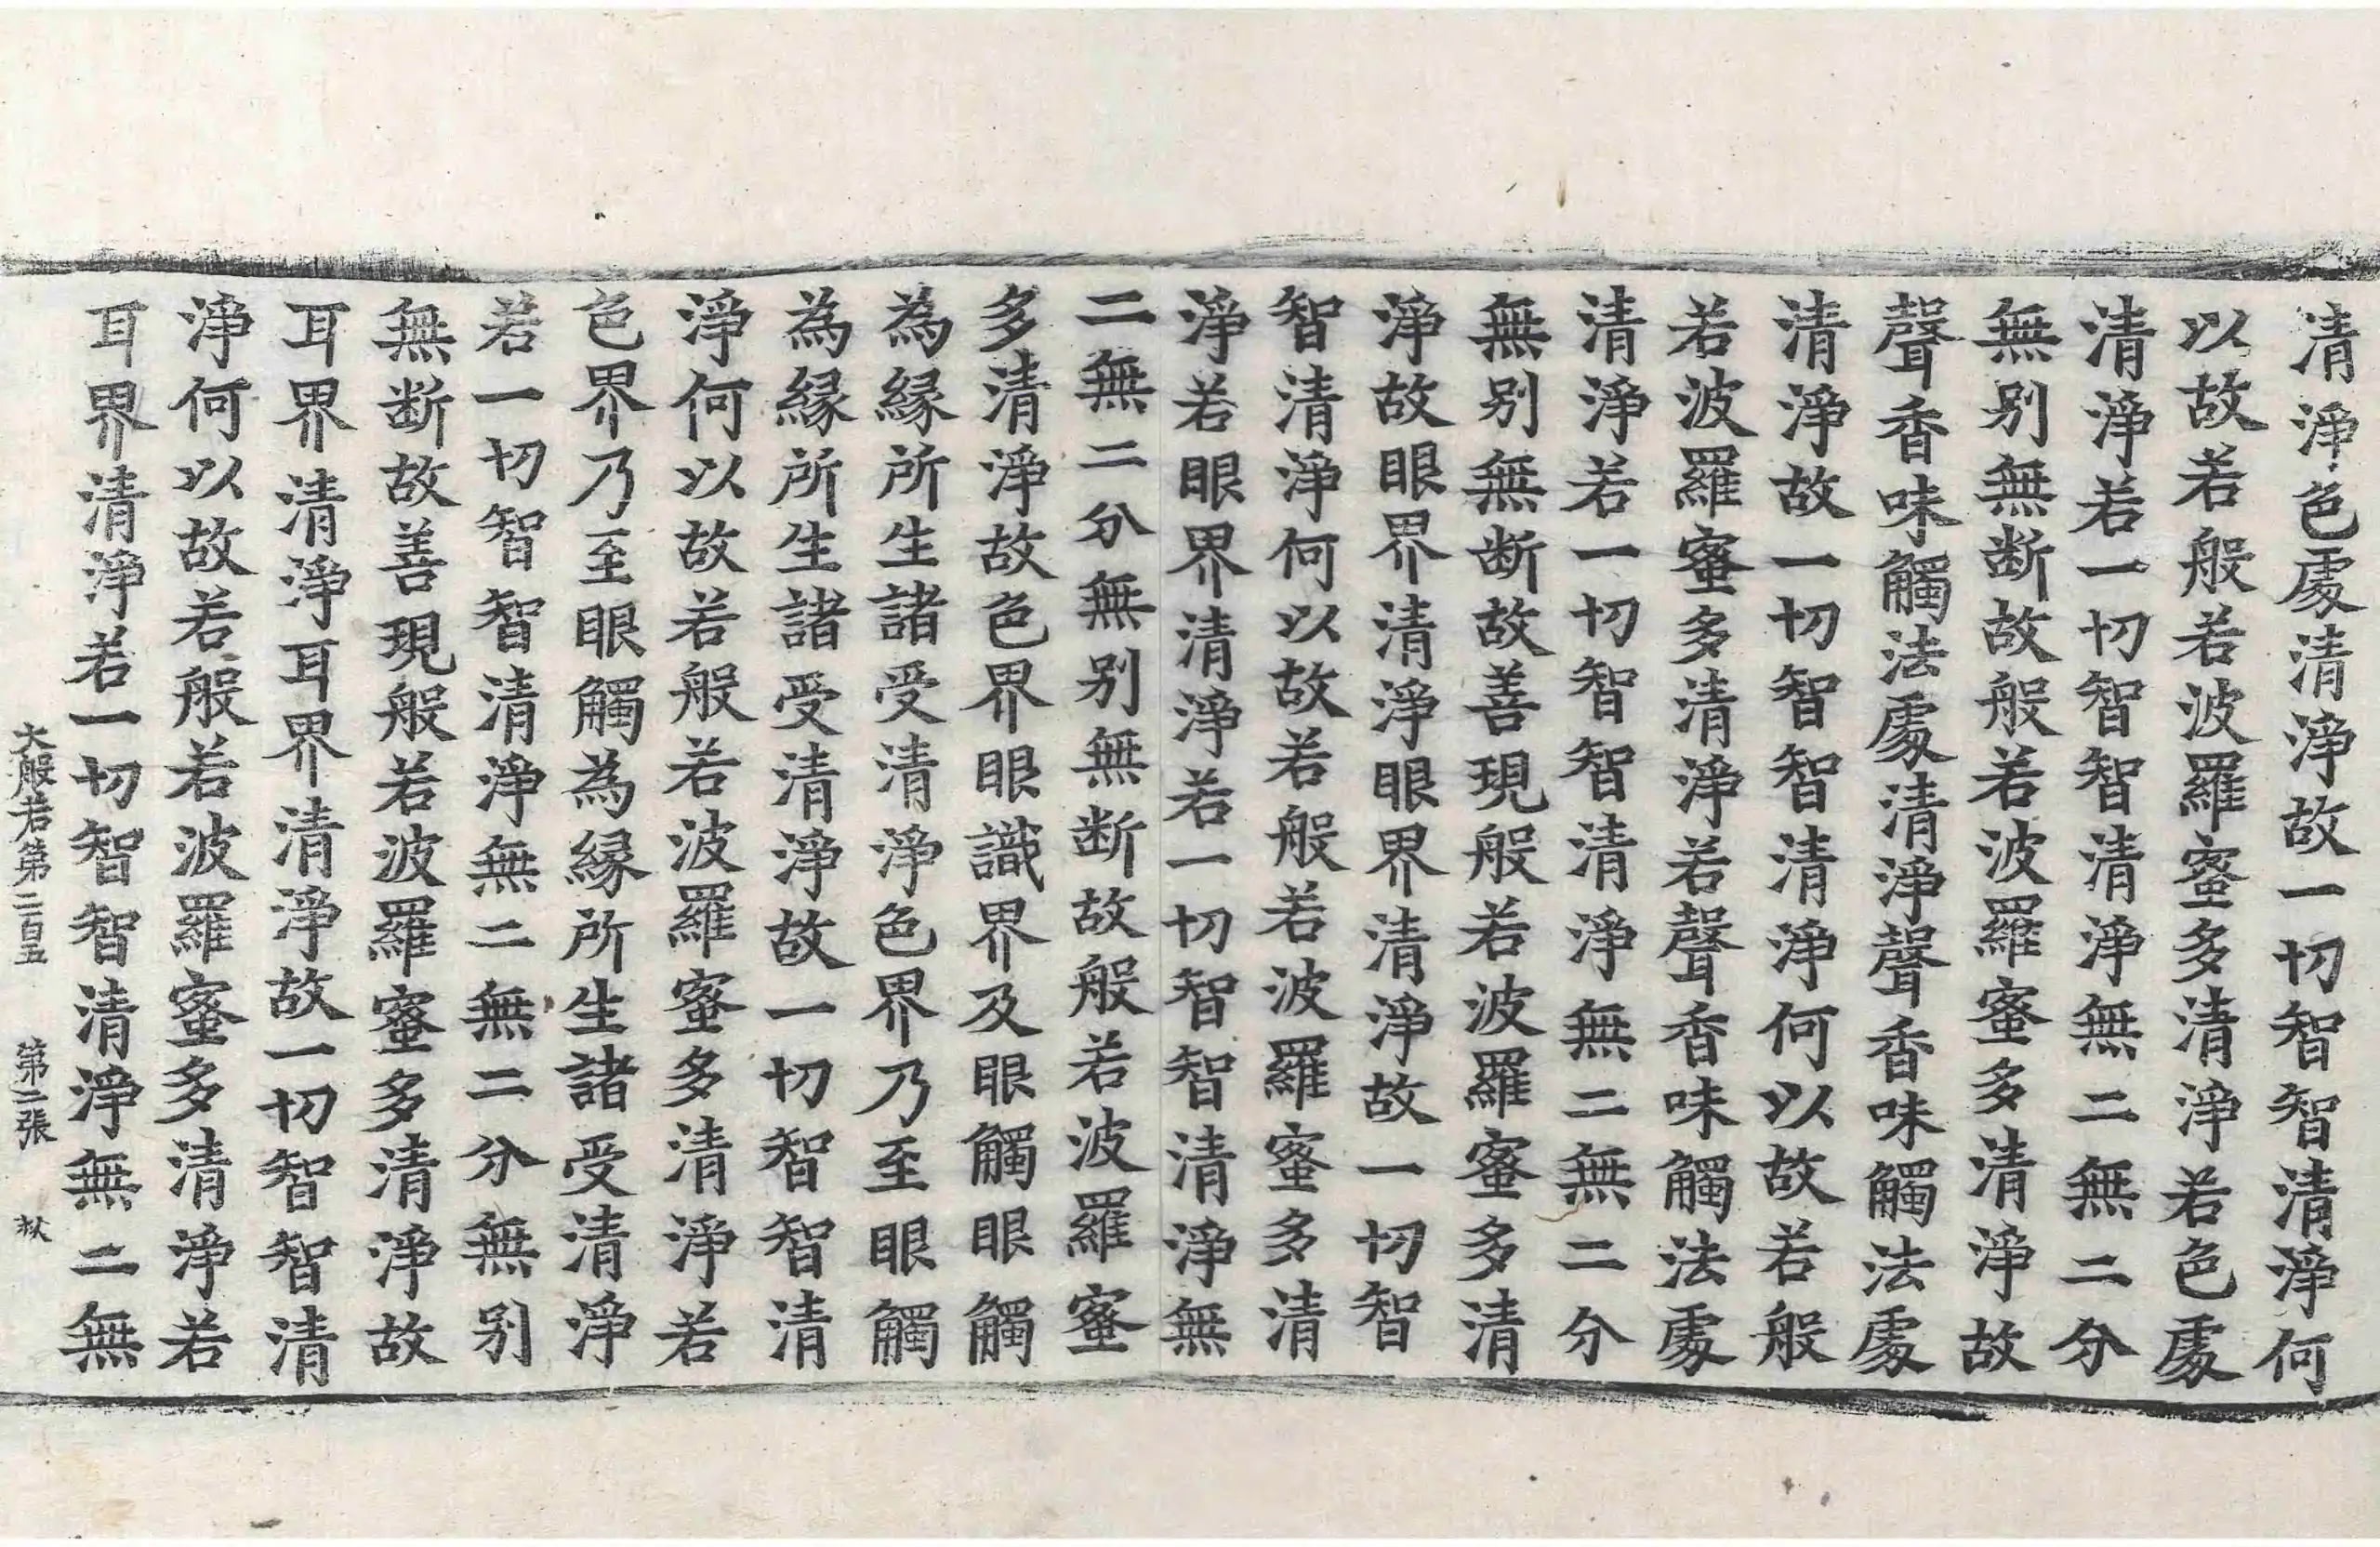 清淨色處清淨故一切智智清淨何
以故若般若波羅蜜多清淨若色處
清淨若一切智智清淨無二無二分
無别無断故般若波羅蜜多清淨故
聲香味觸法處清淨聲香味觸法處
清淨故一切智智清淨何以故若般
若波羅蜜多清淨若聲香味觸法處
清淨若一切智智清淨無二無二分
無别無断故善現般若波羅蜜多清
淨故眼界清淨眼界清淨故一切智
智清淨何以故若般若波羅蜜多清
淨若眼界清淨若一切智智清淨無
二無二分無别無断故般若波羅蜜
多清淨故色界眼識界及眼觸眼觸
為緣所生諸受清淨色界乃至眼觸
為緣所生諸受清淨故一切智智清
淨何以故若般若波羅蜜多清淨若
色界乃至眼觸為緣所生諸受清淨
若一切智智清淨無二無二分無别
無断故善現般若波羅蜜多清淨故
耳界清淨耳界清淨故一切智智清
淨何以故若般若波羅蜜多清淨若
耳界清淨若一切智智清淨無二無
大般若第二百五 第二張